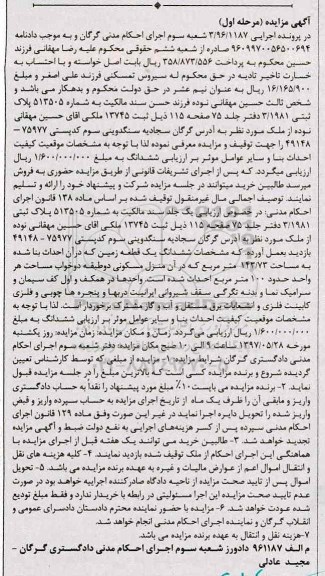 آگهی مزایده (مرحله اول)
در پرونده اجرایی ۳/۹۶/۱۱۸۷ شعبه سوم اجرای احکام مدنی گرگان و به موجب دادنامه
۹۶۰۹۹۷۰۰۵۶۵۰۰۶۹۴ صادره از شعبه ششم حقوقی محکوم علیه رضا مهقانی فرزند
حسین محکوم به پرداخت ۳۵۸/۸۷۳/۵۵۶ ریال بابت اصل خواسته و با احتساب به
خسارت تاخیر تادیه در حق محکوم له سیروس تمسکنی فرزند علی اصغر و مبلغ
۱۶/۱۶۵/۹۰۰ ریال به عنوان نیم عشر در حق دولت محکوم و بدهکار می باشد و
شخص ثالث حسین مهقانی نوده فرزند حسن سند مالکیت به شماره ۵۱۳۵۰۵ پلاک
ثبتی ۳/۱۹۸۱ دفتر جلد ۷۵ صفحه ۱۱۵ ذیل ثبت ۱۳۷۴۵ ملکی اقای حسین مهقانی
نوده از ملک مورد نظر به آدرس گرگان سجادیه سنگدوینی سوم کدپستی ۷۵۹۷۷ -
۴۹۱۴۸ را جهت توقیف و مزایده معرفی نموده لذا با توجه به مشخصات موقعیت کیفیت
احداث بنا و سایر عوامل موثر بر ارزیابی ششدانگ به مبلغ ۱/۶۰۰/۰۰۰/۰۰۰ ریال
ارزیابی میگردد. که پس از اجرای تشریفات قانونی از طریق مزایده حضوری به فروش
میرسد طالبین خرید میتوانند در جلسه مزایده شرکت و پیشنهاد خود را ارائه و تسلیم
نمایند. توصیف اجمالی مال غیرمنقول توقیف شده بر اساس ماده ۱۳۸ قانون اجرای
احکام مدنی: در خصوص ارزیابی یک جلد سند مالکیت به شماره ۵۱۳۵۰۵ پلاک ثبتی
۳/۱۹۸۱ دفتر جلد ۷۵ صفحه ۱۱۵ ذیل ثبت ۱۳۷۴۵ ملکی اقای حسین مهقانی نوده
از ملک مورد نظر به آدرس گرگان سجادیه سنگدوینی سوم کدپستی ۷۵۹۷۷ - ۴۹۱۴۸
بازدید بعمل آورده که مشخصات ششدانگ یک قطعه زمین که در آن احداث بنا شده
به مساحت ۱۴۳/۷۳ متر مربع که در آن منزل مسکونی دوطبقه دوخواب مساحت هر
واحد حدود ۱۰۰ متر مربع احداث شده است. واحدها در همکف و اول کف سیمان و
سرامیک نما و بدنه رنگی سقف شیروانی ایرانیت دربها و پنجره ها چوبی و فلزی
کابینت فلزی و انشعابات برق مستقل و آب و گاز مشترک برخوردار است. لذا با توجه به
مشخصات موقعیت کیفیت احداث بنا و سایر عوامل موثر بر ارزیابی ششدانگ به مبلغ
۱/۶۰۰/۰۰۰/۰۰۰ ریال ارزیابی می گردد. زمان و مکان مزایده: زمان مزایده: روز یکشنبه
مورخه ۱۳۹۷/۰۵/۲۸ ساعت ۹ الی ۱۰ صبح مکان مزایده: دفتر شعبه سوم اجرای احکام
مدنی دادگستری گرگان شرایط مزایده: ۱- مزایده از مبلغی که توسط کارشناس تعیین
گردیده شروع و برنده مزایده کسی است که بالاترین مبلغ را در جلسه مزایده قبول
نماید. ۲- برنده مزایده می بایست ۱۰٪ مبلغ مورد پیشنهاد را نقدا به حساب دادگستری
واریز و مابقی آن را ظرف یک ماه از تاریخ اجرای مزایده به حساب سپرده واریز و قبض
واریز شده را تحویل دایره اجرا نماید در غیر این صورت وفق ماده ۱۲۹ قانون اجرای
احکام مدنی سپرده پس از کسر هزینه‌های اجرایی به نفع دولت ضبط و آگهی مزایده
تجدید خواهد شد. ۳- طالبین خرید می توانند یک هفته قبل از اجرای مزایده با
هماهنگی این اجرای احکام از ملک توقیف شده بازدید نمایند. ۴- کلیه هزینه های نقل
و انتقال اموال اعم از عوارض مالیات و غیره به عهده برنده مزایده می باشد. ۵- تحویل
اموال پس از تایید صحت مزایده از ناحیه دادگاه صادرکننده اجراییه خواهد بود در صورت
عدم تایید صحت مزایده این اجرا مسئولیتی در رابطه با خریدار ندارد و فقط مبلغ تودیع
شده عودت خواهد شد. ۶- مزایده با حضور نماینده محترم دادستان دادسرای عمومی و
انقلاب گرگان و نماینده اجرای احکام مدنی انجام خواهد شد.
۷- هزینه نقل و انتقال به عهده برنده مزایده می باشد.
م الف ۹۶۱۱۸۷ دادورز شعبه سوم اجرای احکام مدنی دادگستری گرگان -
مجید عادلی